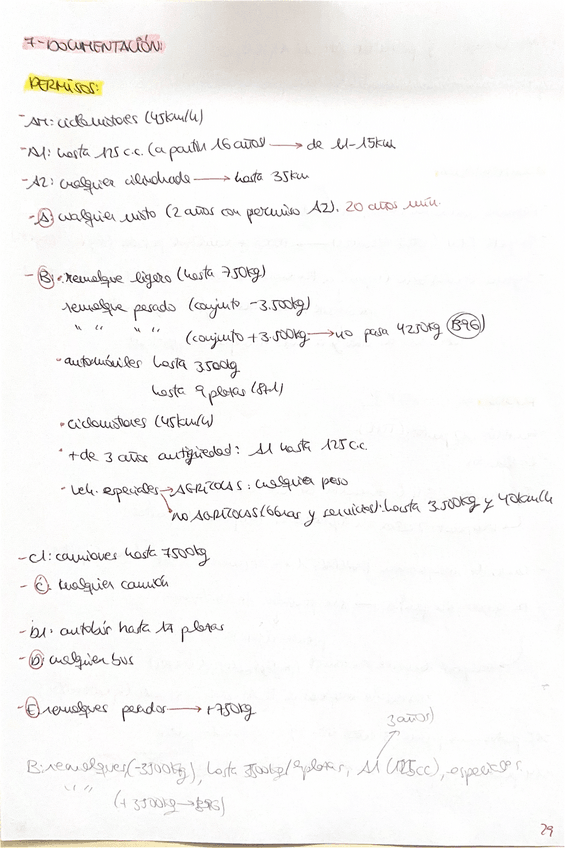 7-DOCUMENTACIÓN:
PERMISOS:
-AM: ciclomotores (45km/h)
-A1: hasta 125 c.c. (a partir 16 años) → de 11-15kw
-A2: cualquier cilindrada → hasta 35km
-A: cualquier moto (2 años con permiso A2). 20 años mín.
-B: · remolque ligero (hasta 750kg)
remolque pesado (conjunto -3.500kg)
" " " " (conjunto +3.500kg → no pasa 4250kg B96)
· automóviles hasta 3500kg
hasta 9 plazas (8+1)
· ciclomotores (45km/h)
· + de 3 años antigüedad: A1 hasta 125 c.c.
· veh. especiales → AGRÍCOLAS: cualquier peso
→ no AGRÍCOLAS (obras y servicios): hasta 3.500kg y 40km/h
-C1: camiones hasta 7500kg
-C: cualquier camión
-D1: autobús hasta 17 plazas
-D: cualquier bus
-E: remolques pesados → +750kg
3 años)
B: remolques (-3500kg), hasta 3500kg/9 plazas, A1 (125cc), especiales
" " (+3500kg → B96)
29